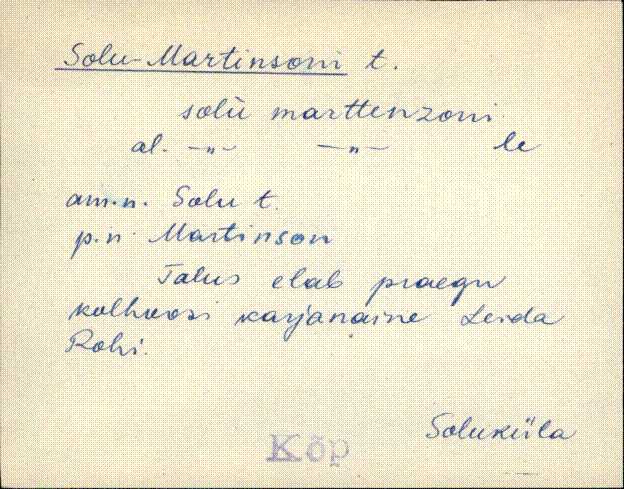 Solu-Martinsoni t.
solù marttenzoni
al. -"- -"- le
am.n. Solu t.
p.n. Martinson
Talus elab praegu
kolhoosi karjanaine Leida
Rohi.
Soluküla
Kõp